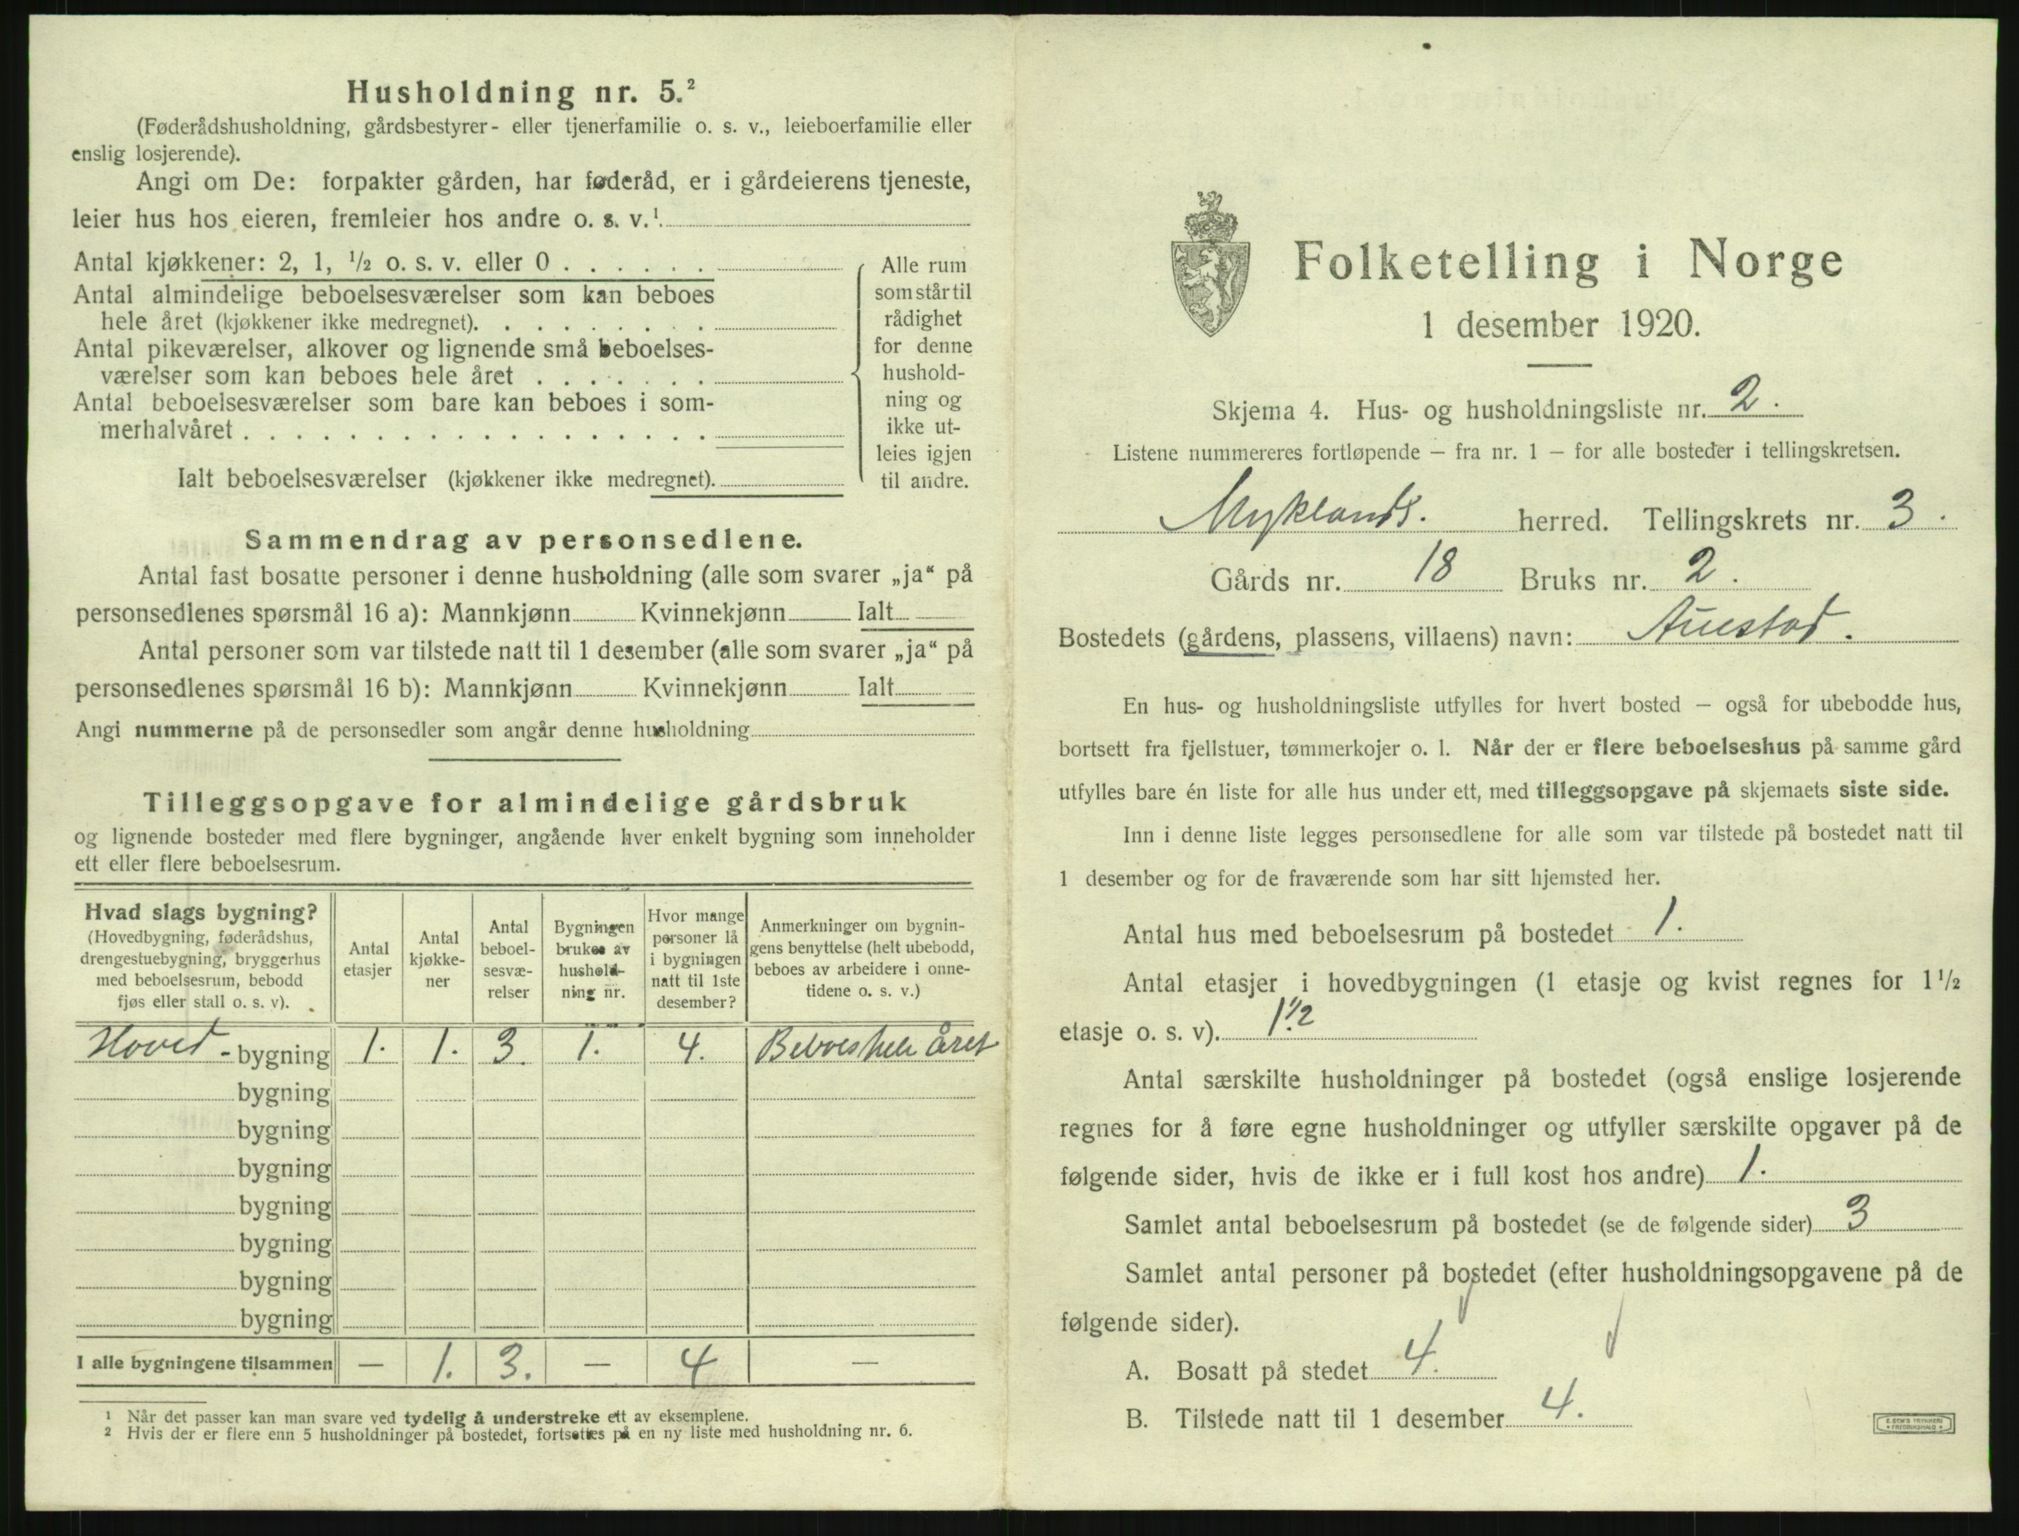 Husholdning nr. 5.²
(Føderådshusholdning, gårdsbestyrer- eller tjenerfamilie o. s. v., leieboerfamilie eller
enslig losjerende).
Angi om De: forpakter gården, har føderåd, er i gårdeierens tjeneste,
leier hus hos eieren, fremleier hos andre o. s. v.¹
Antal kjøkkener: 2, 1, ½ o. s. v. eller 0
Antal almindelige beboelsesværelser som kan beboes
hele året (kjøkkener ikke medregnet).
Antal pikeværelser, alkover og lignende små beboelses-
værelser som kan beboes hele året
Antal beboelsesværelser som bare kan beboes i som-
merhalvåret
Ialt beboelsesværelser (kjøkkener ikke medregnet).
Alle rum
som står til
rådighet
for denne
hushold-
ning og
ikke ut-
leies igjen
til andre.
Sammendrag av personsedlene.
Antal fast bosatte personer i denne husholdning (alle som svarer „ja“ på
personsedlenes spørsmål 16 a): Mannkjønn Kvinnekjønn Ialt
Antal personer som var tilstede natt til 1 desember (alle som svarer „ja“ på
personsedlenes spørsmål 16 b): Mannkjønn Kvinnekjønn Ialt
Angi nummerne på de personsedler som angår denne husholdning
Tilleggsopgave for almindelige gårdsbruk
og lignende bosteder med flere bygninger, angående hver enkelt bygning som inneholder
ett eller flere beboelsesrum.
Hvad slags bygning?
(Hovedbygning, føderådshus,
drengestuebygning, bryggerhus
med beboelsesrum, bebodd
fjøs eller stall o. s. v).
Antal
etasjer
Antal
kjøkke-
ner
Antal
beboel-
sesvæ-
relser
Bygningen
brukes av
hushold-
ning nr.
Hvor mange
personer lå
i bygningen
natt til 1ste
desember?
Anmerkninger om bygnin-
gens benyttelse (helt ubebodd,
beboes av arbeidere i onne-
tidene o. s. v.)
Hoved - bygning 1. 1. 3. 1. 4. Beboes hele året
bygning
bygning
bygning
bygning
bygning
bygning
bygning
I alle bygningene tilsammen — 1. 3. — 4 —
¹ Når det passer kan man svare ved tydelig å understreke ett av eksemplene.
² Hvis der er flere enn 5 husholdninger på bostedet, fortsettes på en ny liste med husholdning nr. 6.
Folketelling i Norge
1 desember 1920.
Skjema 4. Hus- og husholdningsliste nr. 2.
Listene nummereres fortløpende – fra nr. 1 – for alle bosteder i tellingskretsen.
Myklands. herred. Tellingskrets nr. 3.
Gårds nr. 18 Bruks nr. 2.
Bostedets (gårdens, plassens, villaens) navn: Austad.
En hus- og husholdningsliste utfylles for hvert bosted – også for ubebodde hus,
bortsett fra fjellstuer, tømmerkojer o. l. Når der er flere beboelseshus på samme gård
utfylles bare én liste for alle hus under ett, med tilleggsopgave på skjemaets siste side.
Inn i denne liste legges personsedlene for alle som var tilstede på bostedet natt til
1 desember og for de fraværende som har sitt hjemsted her.
Antal hus med beboelsesrum på bostedet 1.
Antal etasjer i hovedbygningen (1 etasje og kvist regnes for 1½
etasje o. s. v). 1½.
Antal særskilte husholdninger på bostedet (også enslige losjerende
regnes for å føre egne husholdninger og utfyller særskilte opgaver på de
følgende sider, hvis de ikke er i full kost hos andre) 1.
Samlet antal beboelsesrum på bostedet (se de følgende sider) 3
Samlet antal personer på bostedet (efter husholdningsopgavene på de
følgende sider).
A. Bosatt på stedet 4.
B. Tilstede natt til 1 desember 4.